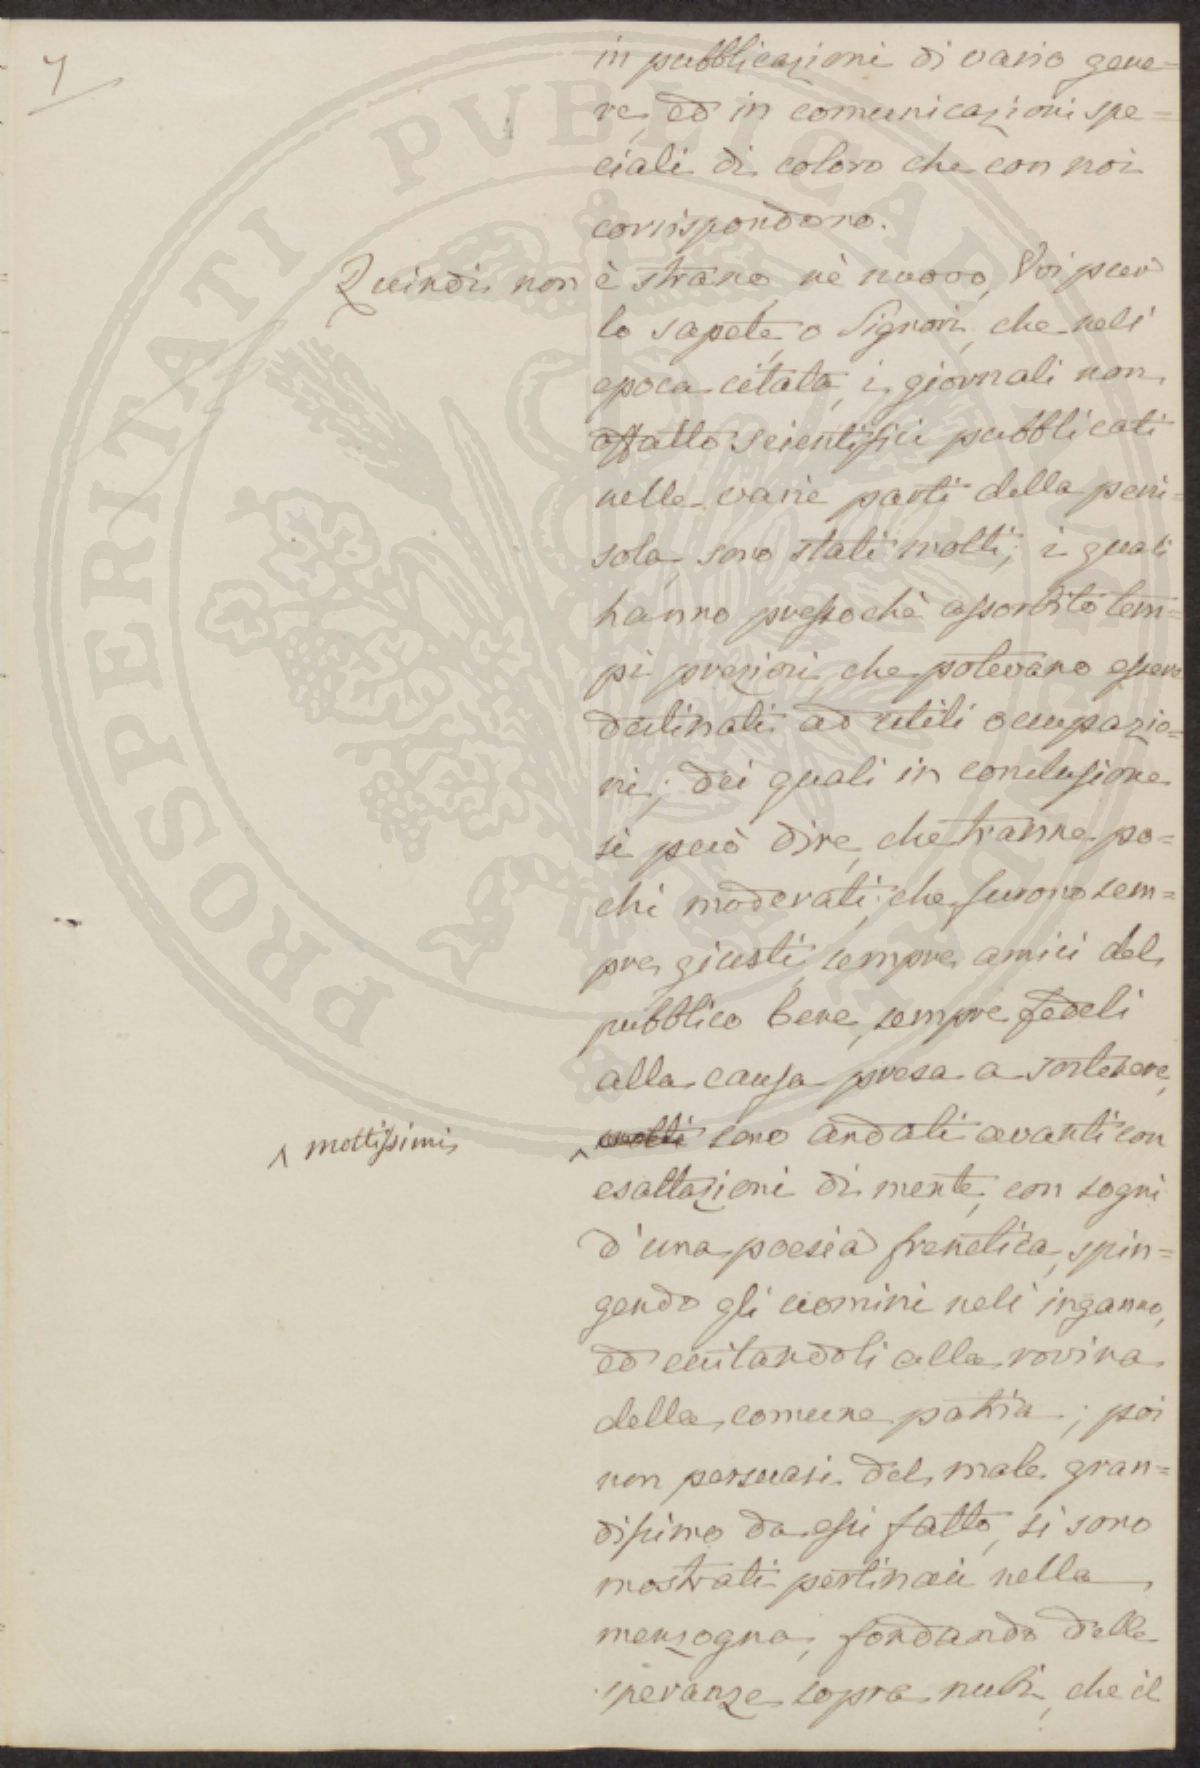 7
in pubblicazioni di vario gene=
re, ed in comunicazioni spe=
ciali di coloro che con noi
corrispondono.
Quindi non è strano, nè nuovo, Voi pur
lo sapete, o Signori, che nell'
epoca citata, i giornali non
affatto scientifici pubblicati
nelle varie parti della peni=
sola, sono stati molti; i quali
hanno pressochè assorbito tem=
pi preziosi, che potevano essere
destinati ad utili occupazio=
ni; dei quali in conclusione
si può dire, che tranne po=
chi moderati, che furono sem=
pre giusti, sempre amici del
pubblico bene, sempre fedeli
alla causa presa a sostenere,
^ moltissimi
^ molti sono andati avanti con
esaltazioni di mente, con sogni
d'una poesia frenetica, spin=
gendo gli uomini nell'inganno,
ed eccitandoli alla rovina
della comune patria; poi
non persuasi del male gran=
dissimo da essi fatto, si sono
mostrati pertinaci nella
menzogna, fondando delle
speranze sopra nubi, che il
PROSPERITATI PUBLICAE AUGENDAE